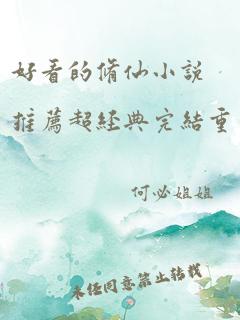 好看的脩仙小説
推薦超經典完結重
何必姐姐
未經同意禁止轉載